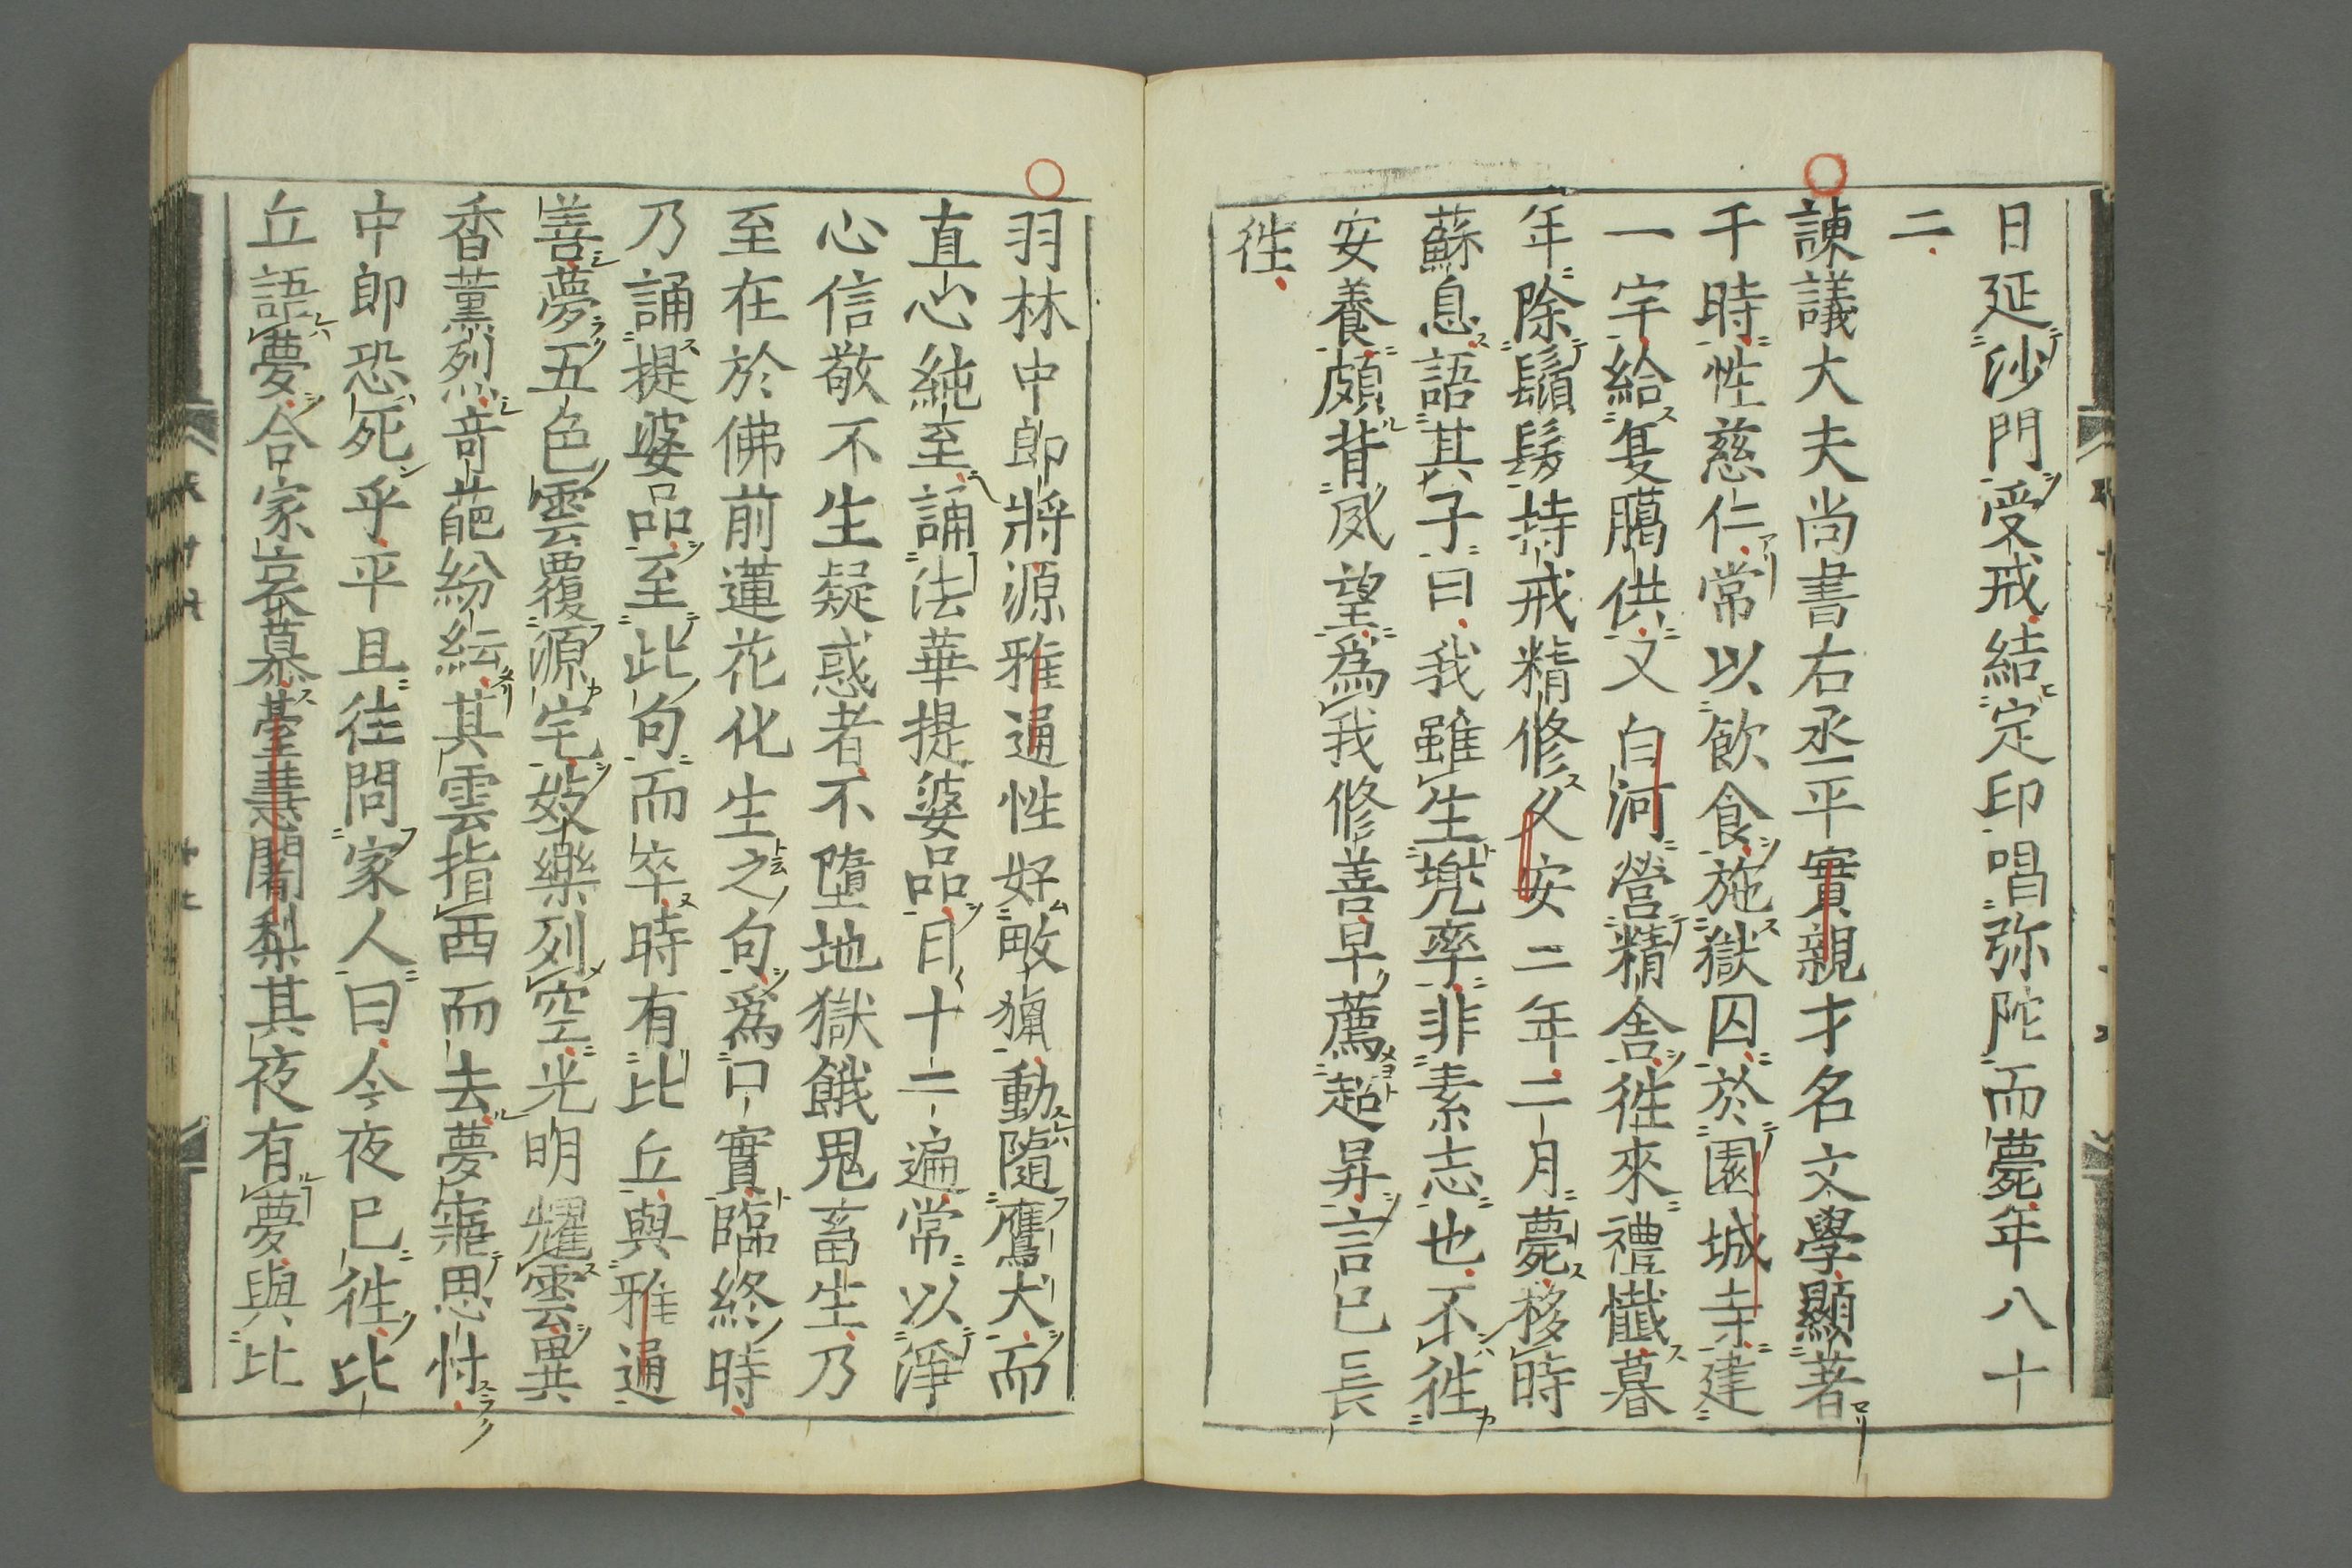 日延沙門受戒結定印唱弥陀而薨年八十
二
諌議大夫尚書右丞平實親才名文學顯著
千時性慈仁常以飲食施獄囚於園城寺建
一宇給夏臈供又白河營精舎徃來禮懺暮
年除鬚髮持戒精修久安二年二月薨移時
蘇息語其子曰我雖生兠率非素志也不徃
安養頗背夙望爲我修善早薦超昇言已長
徃
羽林中郎將源雅通性好畋獵動隨鷹犬而
直心純至誦法華提婆品日十二遍常以淨
心信敬不生疑惑者不墮地獄餓鬼畜生乃
至在於佛前蓮花化生之句爲口實臨終時
乃誦提婆品至此句而卒時有比丘與雅通
善夢五色雲覆源宅妓樂列空光明耀雲異
香薰烈奇葩紛紜其雲指西而去夢寤思忖
中郎恐死乎平旦往問家人曰今夜已徃比
丘語夢合家哀慕臺慧闍梨其夜有夢與比